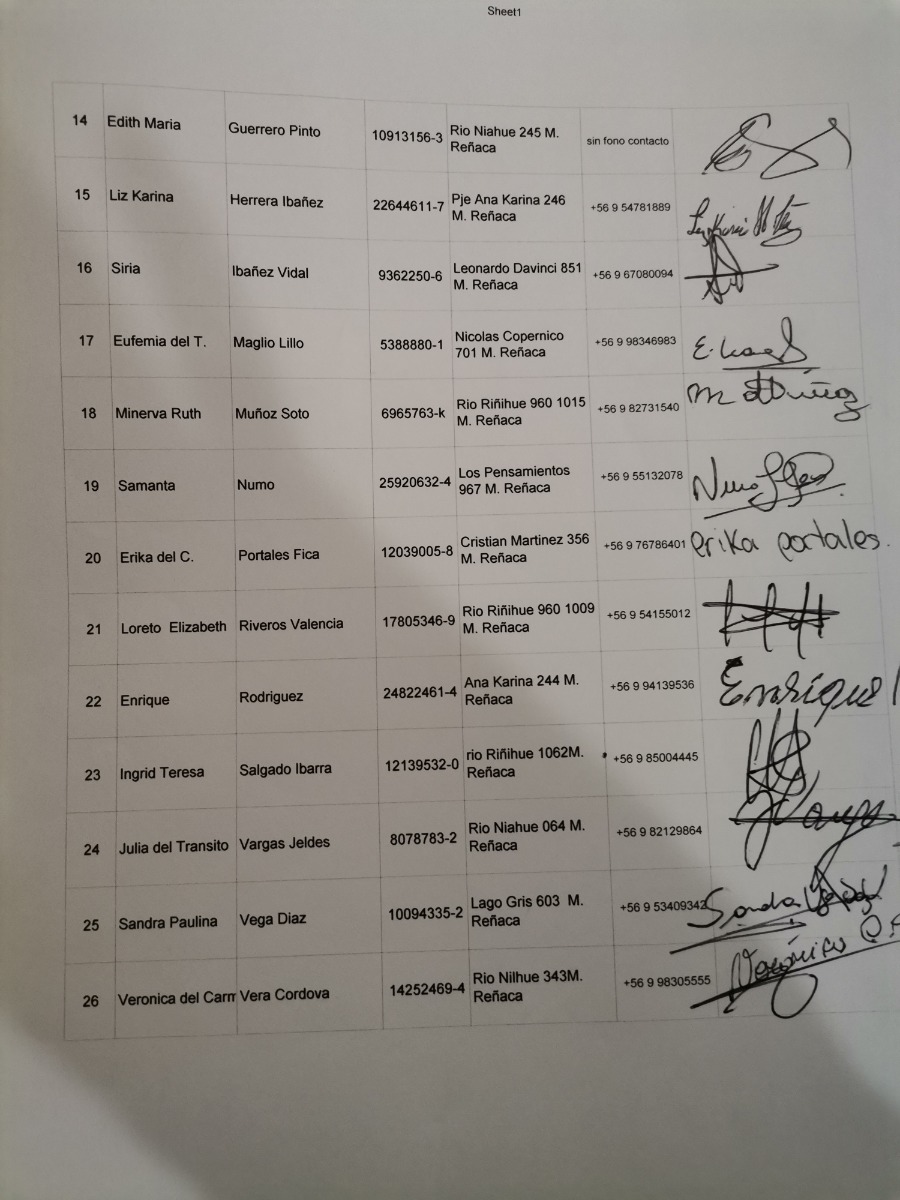 Sheet1
14 Edith Maria Guerrero Pinto 10913156-3 Rio Niahue 245 M. Reñaca sin fono contacto
15 Liz Karina Herrera Ibañez 22644611-7 Pje Ana Karina 246 M. Reñaca +56 9 54781889
16 Siria Ibañez Vidal 9362250-6 Leonardo Davinci 851 M. Reñaca +56 9 67080094
17 Eufemia del T. Maglio Lillo 5388880-1 Nicolas Copernico 701 M. Reñaca +56 9 98346983
18 Minerva Ruth Muñoz Soto 6965763-k Rio Riñihue 960 1015 M. Reñaca +56 9 82731540
19 Samanta Numo 25920632-4 Los Pensamientos 967 M. Reñaca +56 9 55132078
20 Erika del C. Portales Fica 12039005-8 Cristian Martinez 356 M. Reñaca +56 9 76786401 erika portales.
21 Loreto Elizabeth Riveros Valencia 17805346-9 Rio Riñihue 960 1009 M. Reñaca +56 9 54155012
22 Enrique Rodriguez 24822461-4 Ana Karina 244 M. Reñaca +56 9 94139536 Enrique
23 Ingrid Teresa Salgado Ibarra 12139532-0 rio Riñihue 1062M. Reñaca +56 9 85004445
24 Julia del Transito Vargas Jeldes 8078783-2 Rio Niahue 064 M. Reñaca +56 9 82129864
25 Sandra Paulina Vega Diaz 10094335-2 Lago Gris 603 M. Reñaca +56 9 53409342 Sandra
26 Veronica del Carm Vera Cordova 14252469-4 Rio Nilhue 343M. Reñaca +56 9 98305555 Verónica